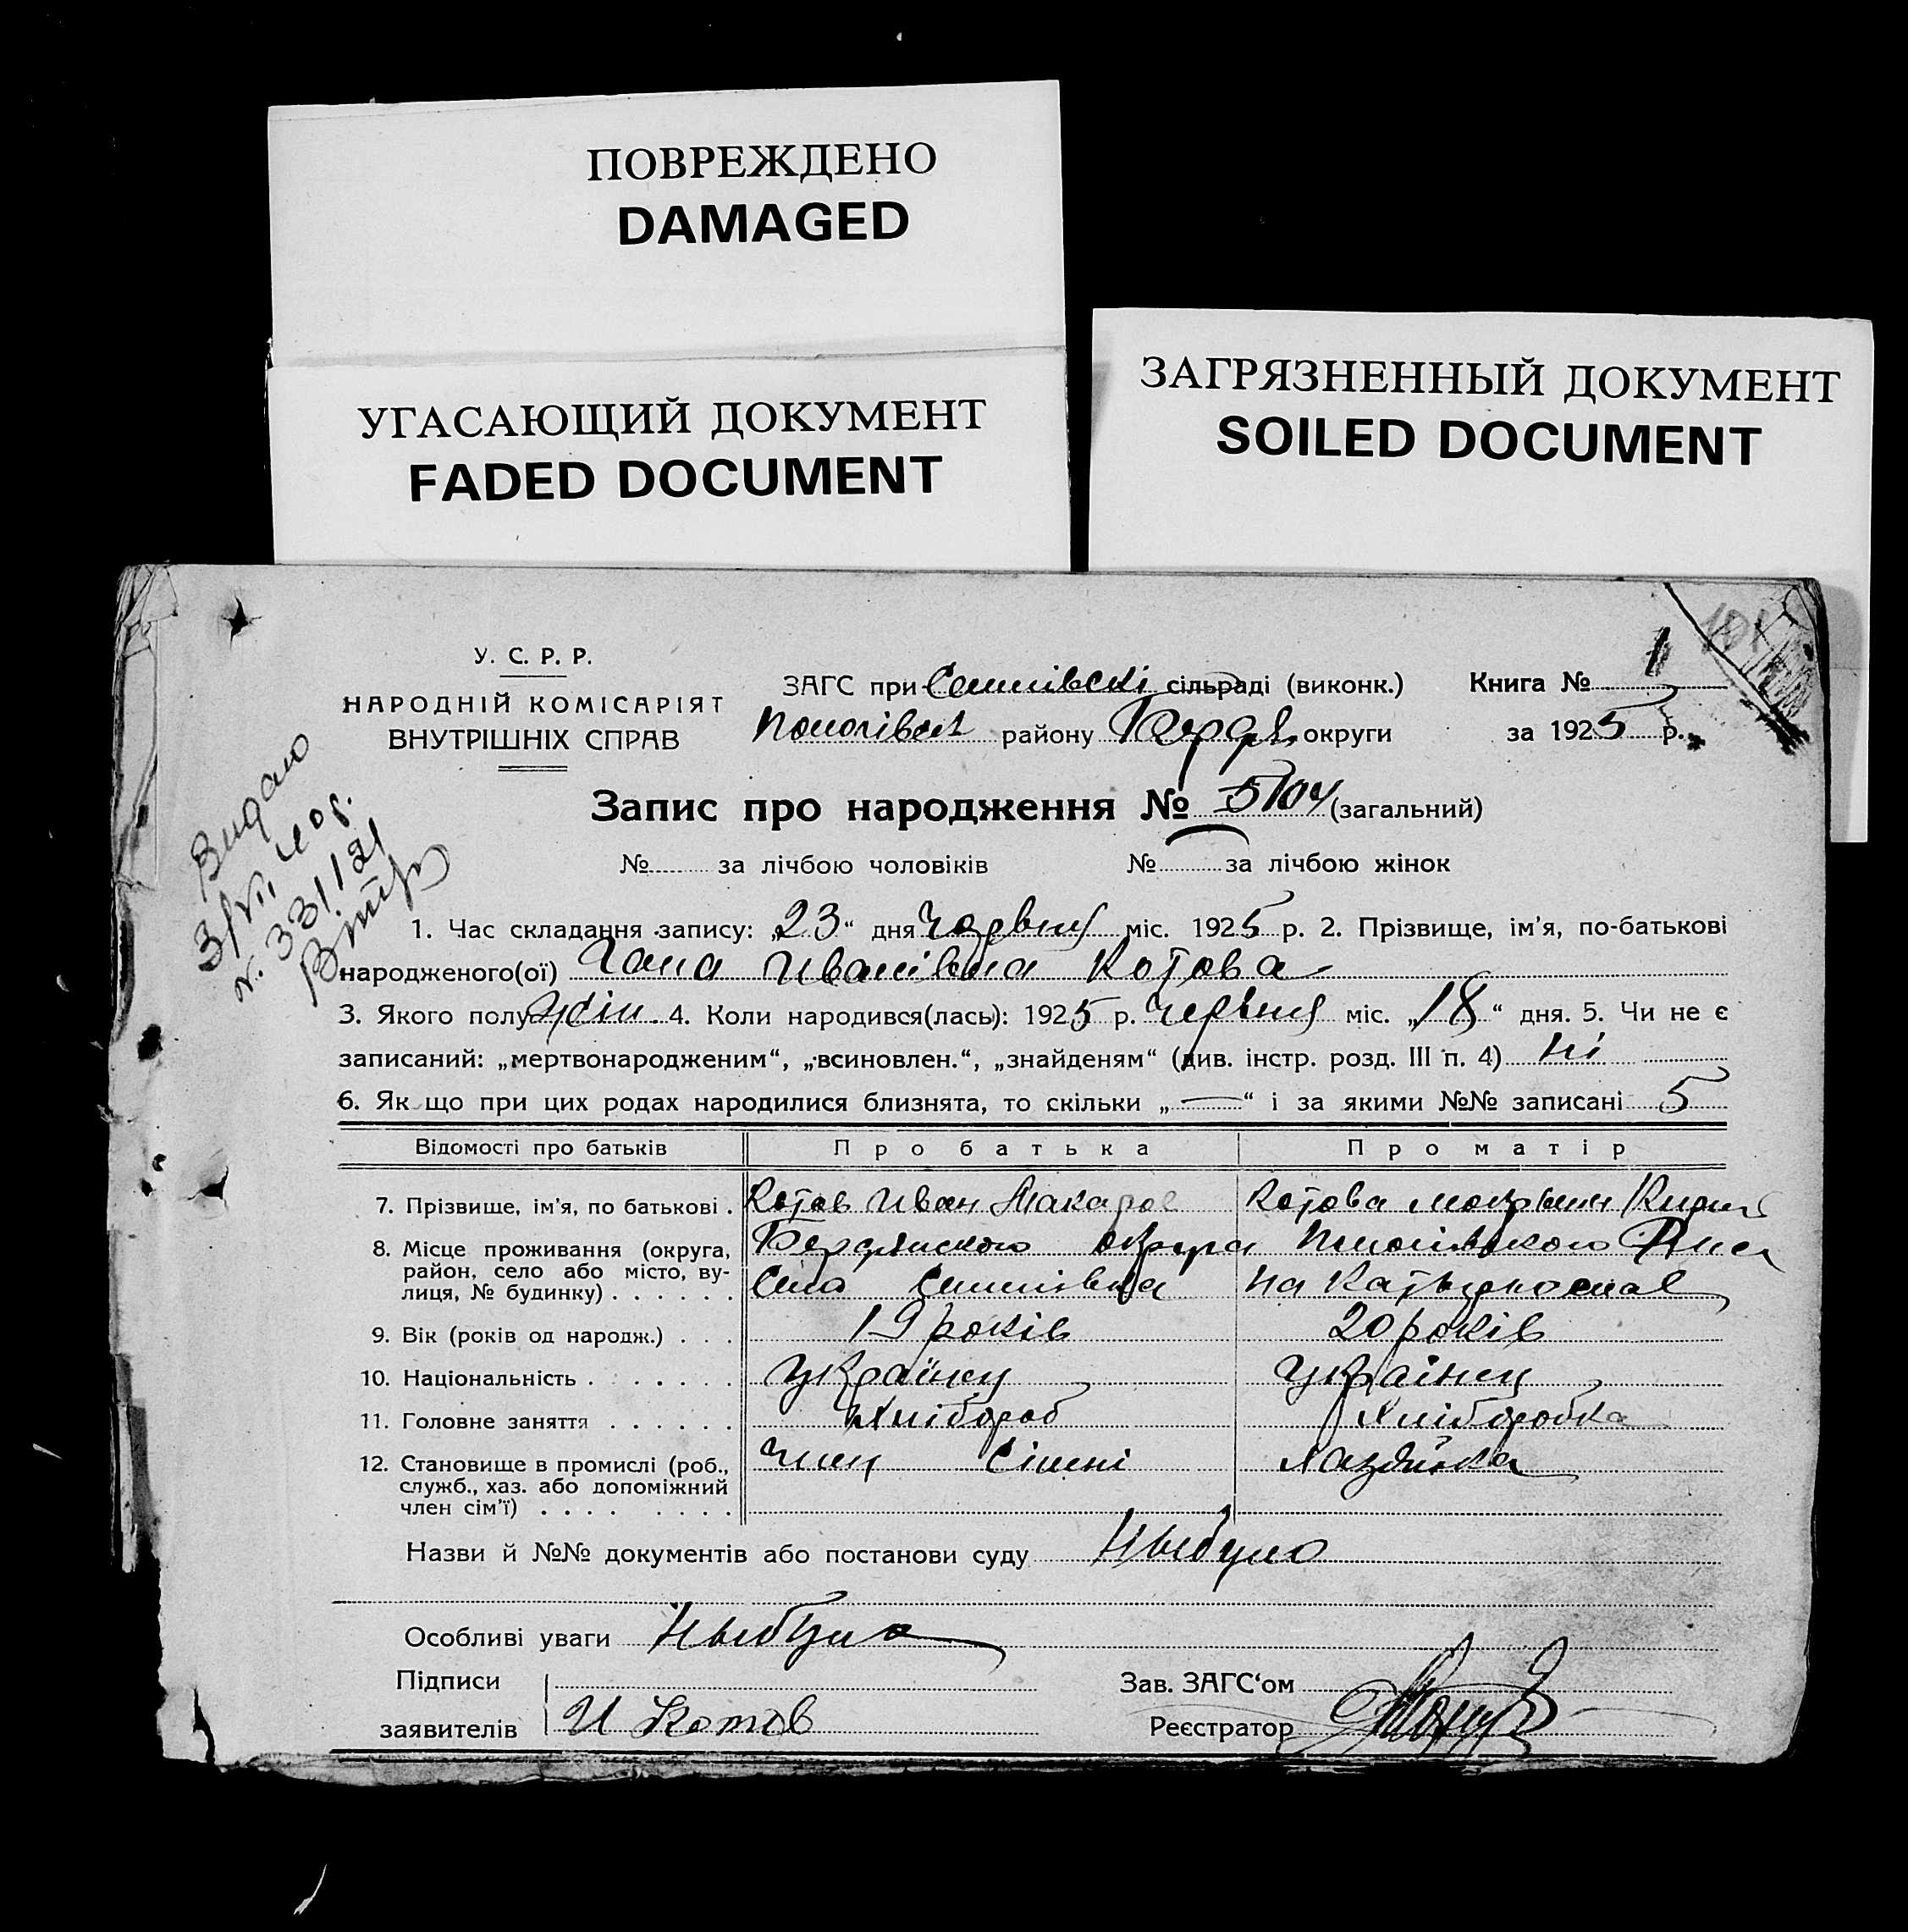 ПОВРЕЖДЕНО
DAMAGED
УГАСАЮЩИЙ ДОКУМЕНТ
FADED DOCUMENT
ЗАГРЯЗНЕННЫЙ ДОКУМЕНТ
SOILED DOCUMENT
У. С. Р. Р.
НАРОДНІЙ КОМІСАРІЯТ
ВНУТРІШНІХ СПРАВ
ЗАГС при сільраді (виконк.)
району Бердян. округи
Книга № 1
за 1925 р.
Видано
3/VII 40 г.
331121
Запис про народження № 5 104 (загальний)
№ за лічбою чоловіків № за лічбою жінок
1. Час складання запису: „23“ дня Червня міс. 1925 р. 2. Прізвище, ім'я, по-батькові
народженого(ої) Гана Иванівна Котова
3. Якого полу жін. 4. Коли народився(лась): 1925 р. Червня міс. „18“ дня. 5. Чи не є
записаний: „мертвонародженим“, „всиновлен.“, „знайденям“ (див. інстр. розд. III п. 4) ні
6. Як що при цих родах народилися близнята, то скільки „—“ і за якими №№ записані 5
Відомості про батьків Про батька Про матір
7. Прізвище, ім'я, по батькові . Котов Иван Макаров Котова
8. Місце проживання (округа, район, село або місто, вулиця, № будинку) . . . . . . Бердянского округа
Село
9. Вік (років од народж.) . . . 19 років 20 років
10. Національність . . . . . . . Українец Українец
11. Головне заняття . . . . . . Хлібороб Хліборобка
12. Становище в промислі (роб., служб., хаз. або допоміжний член сім'ї) . . . . . . . . Член Сімні Хазяйка
Назви й №№ документів або постанови суду Ныбуло
Особливі уваги Ныбуло
Підписи
заявителів И Котов
Зав. ЗАГС'ом
Реєстратор